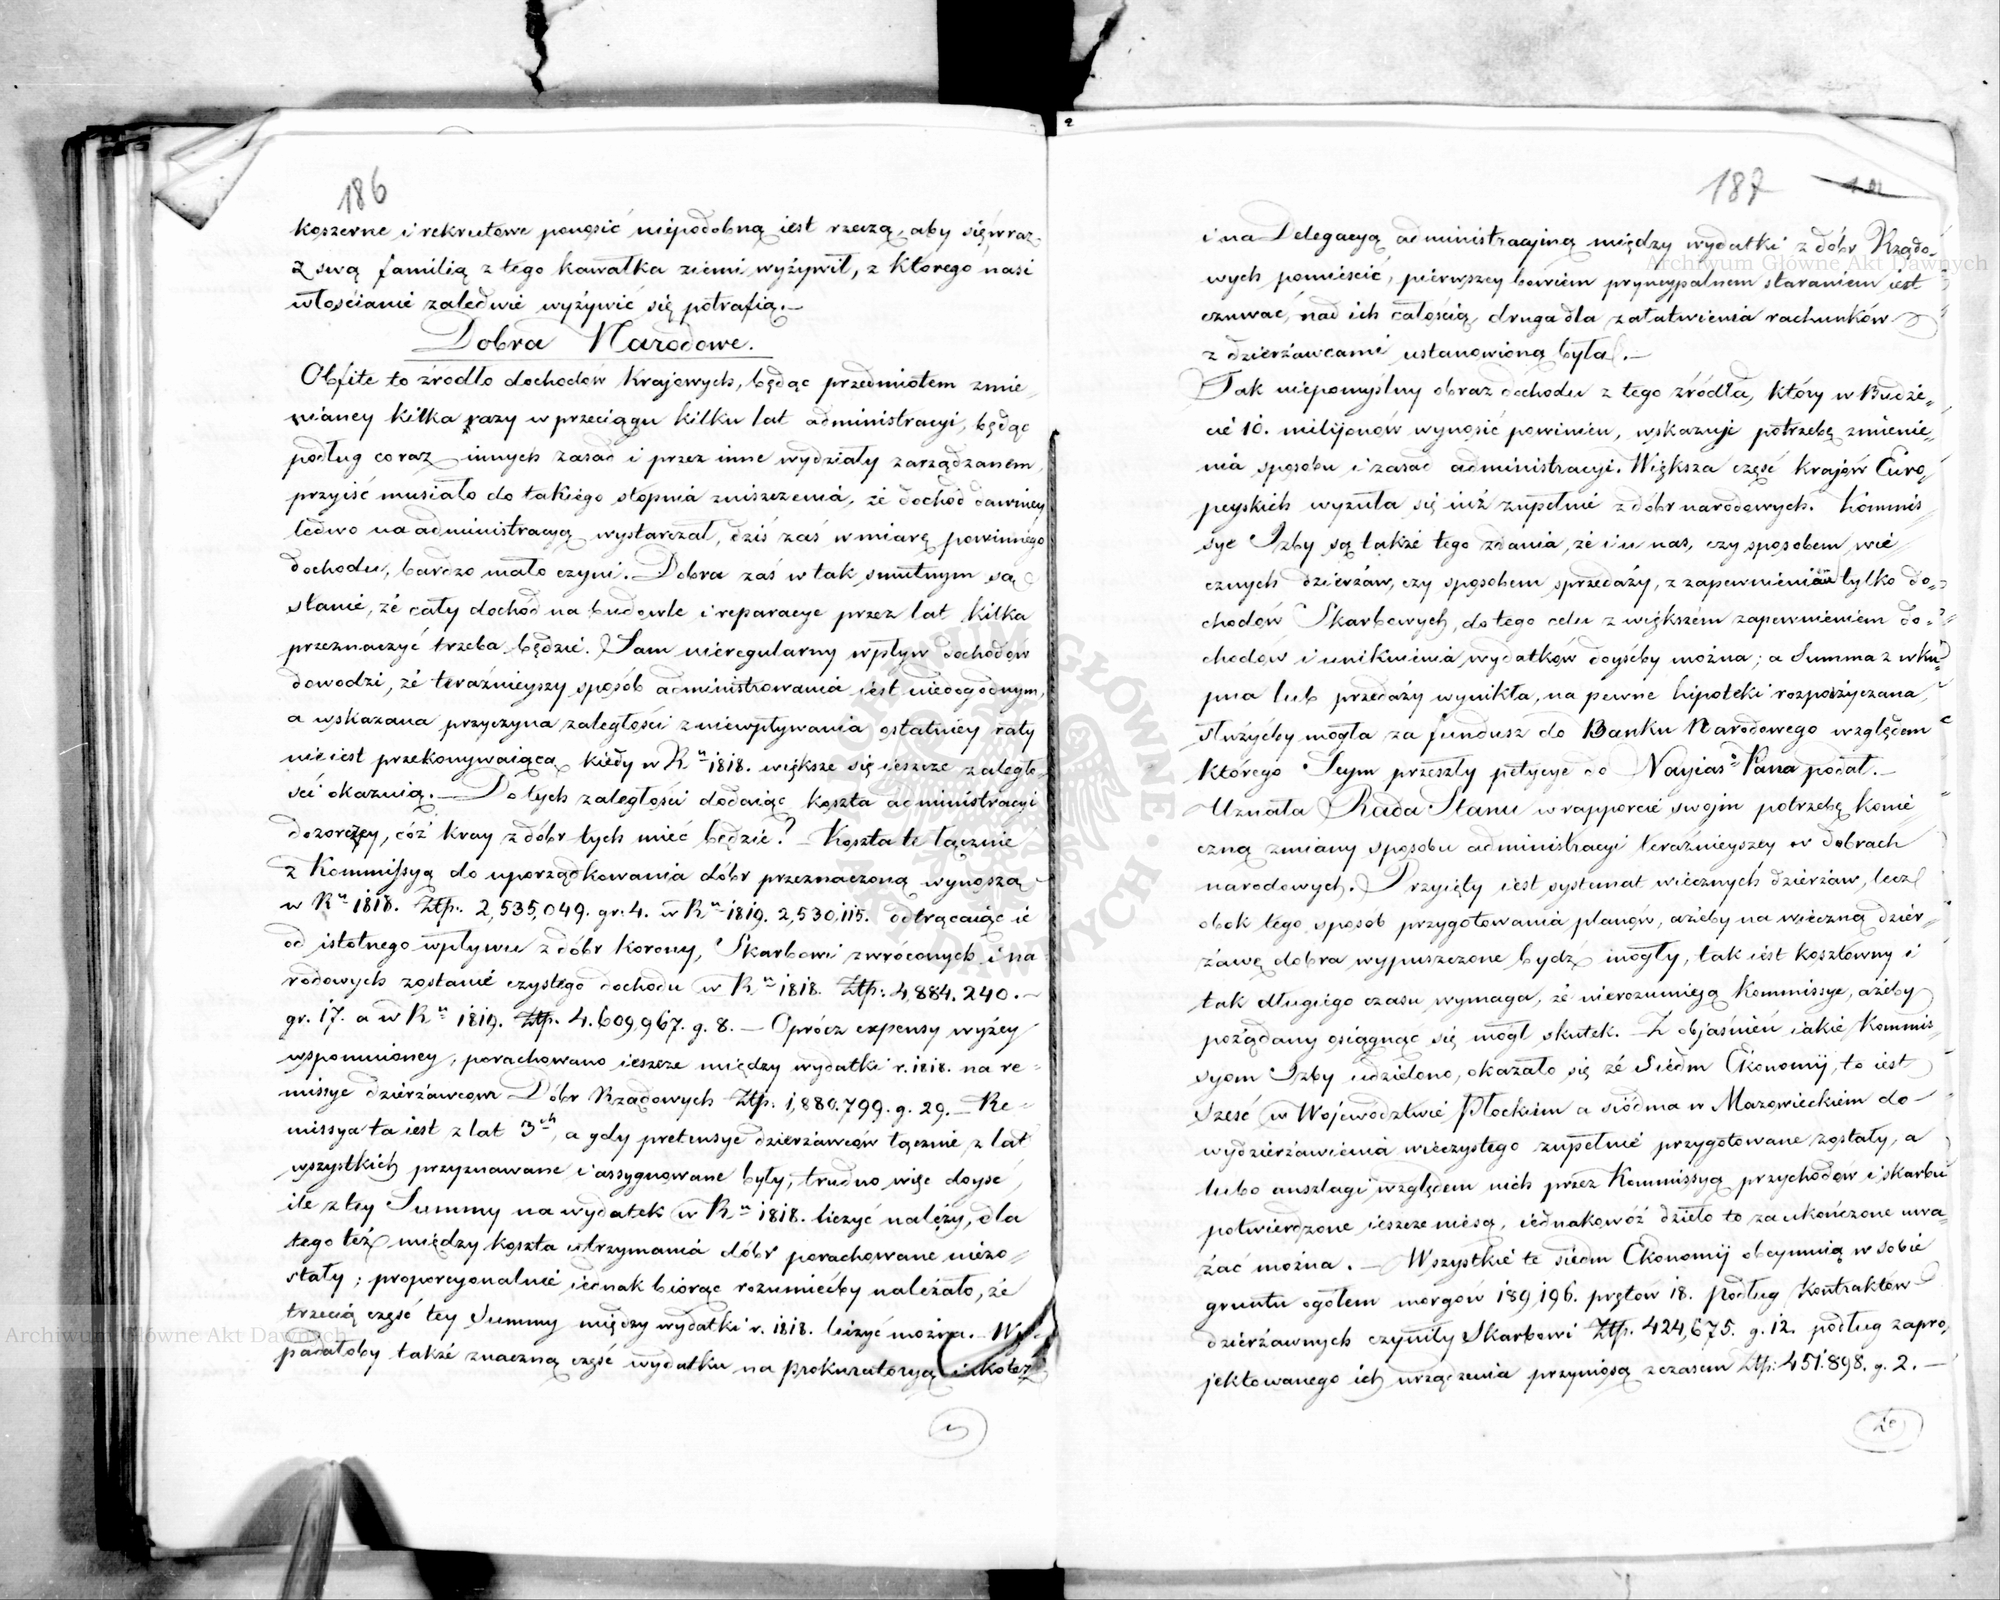 186
koszerne i rekrutowe ponosić niepodobną iest rzeczą, aby się wraz
z swą familią z tego kawałka ziemi wyżywił, z którego nasi
włościanie zaledwie wyżywić się potrafią.—
Dobra Narodowe.
Obfite to źródło dochodów Krajowych, będąc przedmiotem zmie„
nianey kilka razy w przeciągu kilku lat administracyi, będąc
podług coraz innych zasad i przez inne wydziały zarządzanem,
przyiść musiało do takiego stopnia zniszczenia, że dochód dawniey
ledwo na administracyą wystarczał, dziś zaś w miarę powinnego
dochodu, bardzo mało czyni. Dobra zaś w tak smutnym są
stanie, że cały dochód na budowle i reparacye przez lat kilka
przeznaczyć trzeba będzie. Sam nieregularny wpływ dochodów
dowodzi, że teraźnieyszy sposób administrowania iest niedogodnym,
a wskazana przyczyna zaległości z niewpływania ostatniey raty
nie iest przekonywaiąca, kiedy w Ru 1818. większe się ieszcze zaległo„
ści okazuią.— Do tych zaległości dodaiąc koszta administracyi
dozorczey, cóż kray z dóbr tych mieć będzie? — Koszta te łącznie
z Kommissyą do uporządkowania dóbr przeznaczoną wynoszą
w Ru 1818. Złp. 2,535,049. gr. 4. w Ru 1819. 2,530,115. odtrącaiąc ie
od istotnego wpływu z dóbr korony, Skarbowi zwróconych i na
rodowych zostanie czystego dochodu w Ru 1818. Złp: 4,884.240.—
gr. 17. a w Ru 1819. Złp. 4.609,967. g. 8. — Oprócz expensy wyżey
wspomnioney, porachowano ieszcze między wydatki r. 1818. na re=
missye dzierżawcom Dóbr Rządowych Złp. 1,880.799. g. 29.— Re=
missya ta iest z lat 3ch, a gdy pretensye dzierżawców łącznie z lat
wszystkich przyznawane i assygnowane były, trudno więc doyść,
ile z tey Summy na wydatek w Ru 1818. liczyć należy, dla
tego też między koszta utrzymania dóbr porachowane nie zo„
stały; proporcyonalnie iednak biorąc rozumiećby należało, że
trzecią część tey Summy między wydatki r. 1818. liczyć można.— Wy„
padałoby także znaczną część wydatku na Prokuratoryą
187
i na Delegacyą administracyiną między wydatki z dóbr Rządo„
wych pomieścić, pierwszey bowiem pryncypalnem staraniem iest
czuwać, nad ich całością, druga dla załatwienia rachunków
z dzierżawcami ustanowioną była.—
Tak niepomyślny obraz dochodu z tego źródła, który w Budże„
cie 10. milijonów wynosić powinien, wskazuje potrzebę zmienie„
nia sposobu i zasad administracyi. Większa część krajów Euro„
peyskich wyzuła się iuż zupełnie z dóbr narodowych. Kommis„
sye Izby są także tego zdania, że i u nas, czy sposobem wie„
cznych dzierżaw, czy sposobem sprzedaży, z zapewnieniem tylko do=
chodów Skarbowych, do tego celu z większém zapewnieniem do=
chodów i uniknienia wydatków doyśćby można; a Summa z wku„
pna lub przedaży wynikła, na pewne hipoteki rozpożyczana,
służyćby mogła za fundusz do Banku Narodowego względem
którego Seym przeszły petycye do Nayias. Pana podał.—
Uznała Rada Stanu w rapporcie swoim potrzebę konie
czną zmiany sposobu administracyi teraźnieyszey w dobrach
narodowych. Przyięty iest systemat wiecznych dzierżaw, lecz
obok tego, sposób przygotowania planów, ażeby na wieczną dzier„
żawę dobra wypuszczone bydź mogły, tak iest kosztowny i
tak długiego czasu wymaga, że nierozumieją Kommissye, ażeby
pożądany osiągnąć się mógł skutek.— Z objaśnień iakie Kommis„
syom Izby udzielono, okazało się że siedm Ekonomij, to iest
sześć w Województwie Płockiém a siódma w Mazowieckiém do—
wydzierżawienia wieczystego zupełnie przygotowane zostały, a
lubo anszlagi względem nich przez Kommissyą przychodów i skarbu
potwierdzone ieszcze niesą, iednakowoż dzieło to za ukończone uwa„
żać można.— Wszystkie te siedm Ekonomij obeymuią w sobie
gruntu ogółem morgów 189,196. prętów 18. Podług Kontraktów
dzierżawnych czyniły Skarbowi Złp. 424,675. g. 12. podług zapro„
jektowanego ich urządzenia przyniosą z czasem Złp: 451.898. g. 2.—
Archiwum Główne Akt Dawnych
Archiwum Główne Akt Dawnych
ARCHIWUM GŁÓWNE AKT DAWNYCH